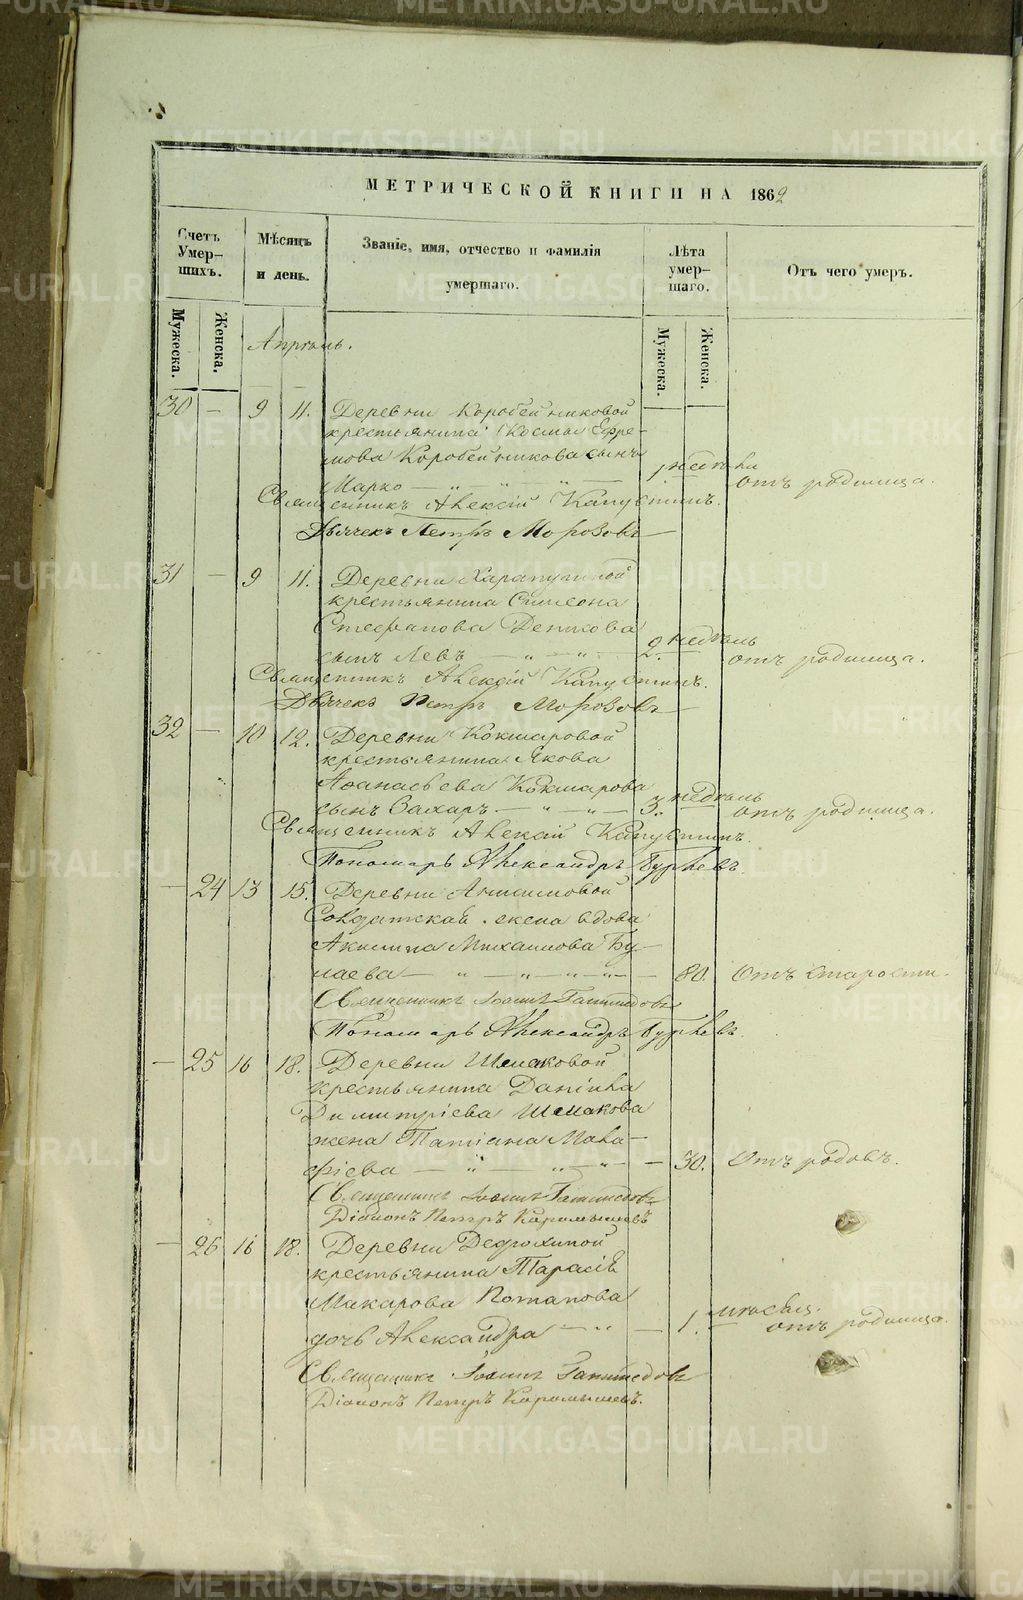 МЕТРИЧЕСКОЙ КНИГИ НА 1862
Счетъ Умер-шихъ.
Мѣсяцъ и день.
Званіе, имя, отчество и фамилія умершаго.
Лѣта умер-шаго.
Отъ чего умеръ.
Мужеска.
Женска.
Мужеска.
Женска.
Апрѣль.
30 — 9 11. Деревни Коробейниковой
крестьянина Космы Ефре-
мова Коробейникова сынъ
Марко — 1 недѣли отъ родимца.
Священникъ Алексій Капустинъ.
Дьячекъ Петръ Морозовъ
31 — 9 11. Деревни
крестьянина Симеона
Стефанова Денкова
сынъ Левъ — 2. недѣль отъ родимца.
Священникъ Алексій Капустинъ.
Дьячекъ Петръ Морозовъ
32 — 10 12. Деревни Кокшаровой
крестьянина Якова
Аѳанасьева Кокшарова
сынъ Захаръ — 3. недѣль отъ родимца.
Священникъ Алексій Капустинъ.
Пономарь Александръ
— 24 13 15. Деревни Анисимовой
Солдатская жена вдова
Акилина Михаилова Бу-
лаева — 80. Отъ старости.
Священникъ Іоаннъ
Пономарь Александръ
— 25 16 18. Деревни Шмаковой
крестьянина Даніила
Димитріева Шмакова
жена Татіана Мака-
рова — 30. Отъ родовъ.
Священникъ Іоаннъ
Діаконъ Петръ Карамышевъ
— 26 16 18. Деревни
крестьянина Тарасія
Макарова Потапова
дочь Александра — 1. мѣсяц. отъ родимца.
Священникъ Іоаннъ
Діаконъ Петръ Карамышевъ.
METRIKI.GASO-URAL.RU